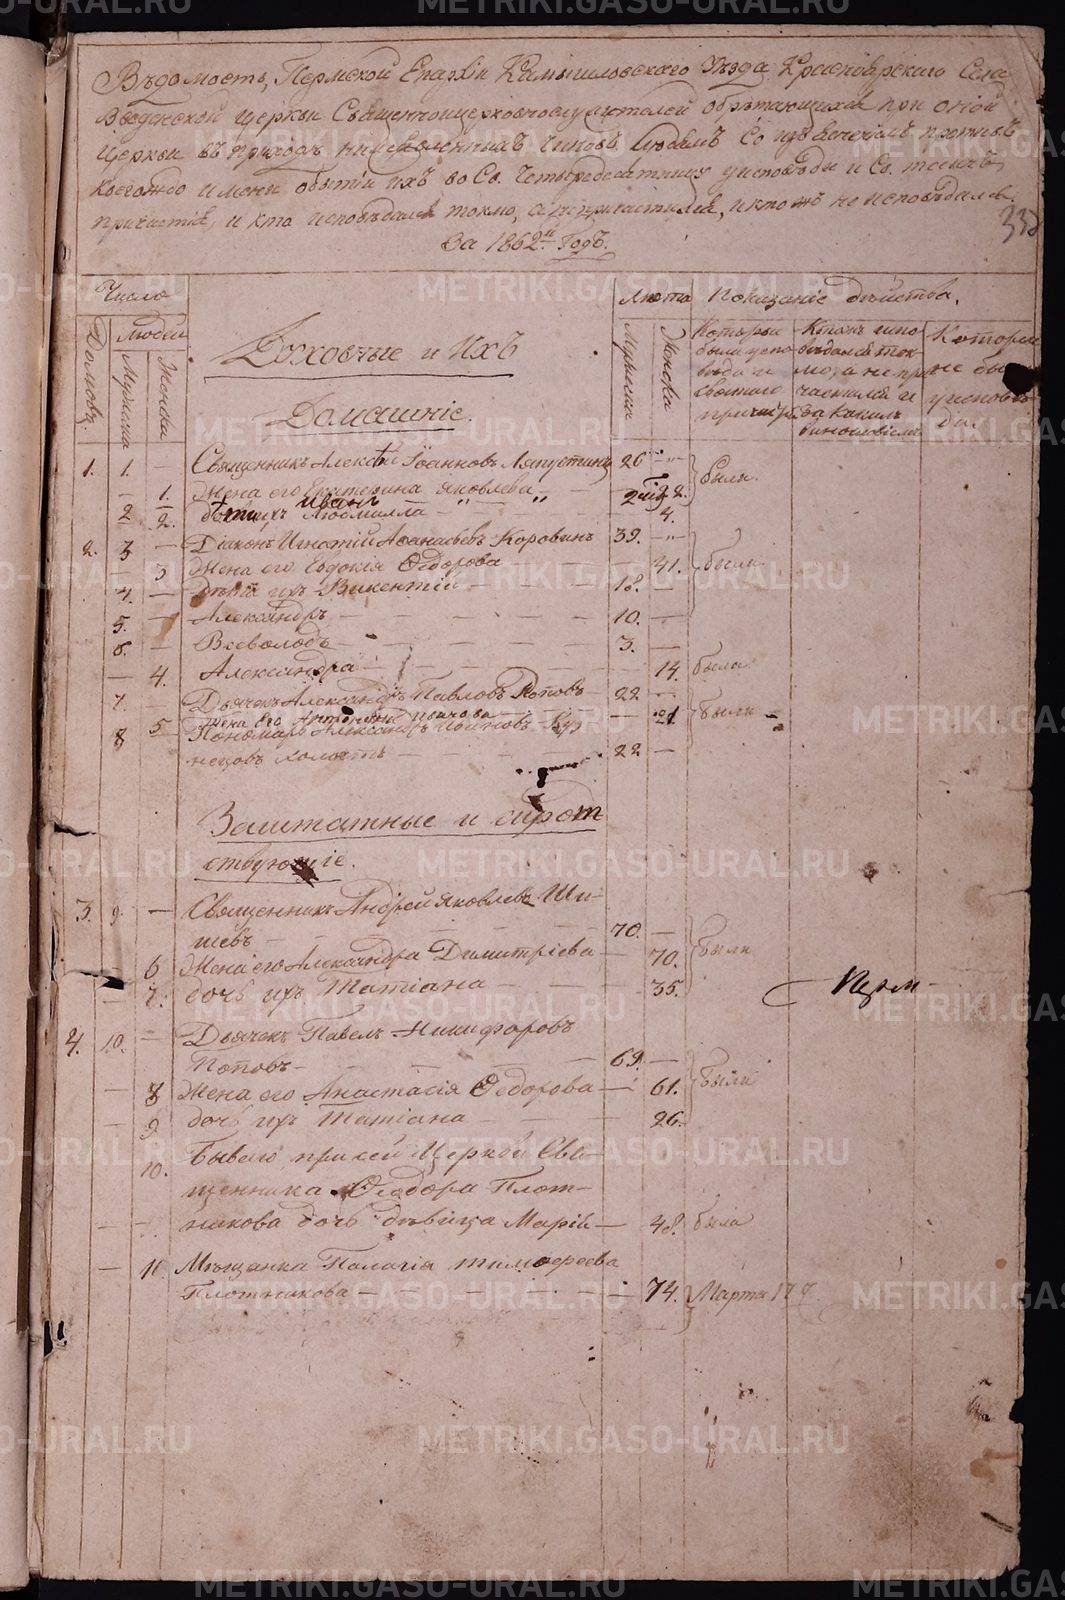 Вѣдомость, Пермской Епархіи Камышловскаго Уѣзда Красноярскаго Села
церкви Священноцерковнослужителей обрѣтающихся при оной
Церкви въ приходѣ нижеименныхъ чиновъ людемъ Со изъявеніемъ противъ
коегождо имени о бытіи ихъ во Св. Четыредесятницу у исповѣди и Св. таинъ
причастія, и кто исповѣдался токмо, а не причастился, и кто жъ не исповѣдался.
За 1862й Годъ.
338
Число
Лѣта Показаніе дѣйства.
Домовъ.
Людей
Мужска
Женска
Духовные и Ихъ
Домашніе.
Мужска
Женска
Которые были у исповѣди и святаго причаст.
Кто жъ исповѣдался токмо, а не причастился и за какимъ винословіемъ
Которые не бы у исповѣди.
1. 1. — Священникъ Алексѣй Іоанновъ Ляпустинъ 26 — были.
1. Жена его Екатерина Яковлева — 22.
2 2. дѣти ихъ Иванъ Людмилла — 2 4.
2. 3 — Діаконъ Игнатій Аѳанасьевъ Коровинъ 39. — были
— 3 Жена его Евдокія Ѳедорова — 41.
4. — дѣти ихъ Викентій — 18. —
5. — Александръ — 10. —
6. — Всеволодъ — 3. —
— 4. Александра — 14. была
7. — Дьячекъ Александръ Павловъ Поповъ — 22 — были
5 Жена его Антонина — 21.
8 — Пономарь Александръ Іоанновъ Куз
нецовъ холостъ — 22 —
Заштатные и сирот
ствующіе.
3. 9. — Священникъ Андрей Яковлевъ Ши-
шевъ — 70. — были
— 6 Жена его Александра Димитріева — 70.
— 7. дочь ихъ Татіана — 35.
Перм-
4. 10. — Дьячекъ Павелъ Никифоровъ
Поповъ — 69. — были
— 8 Жена его Анастасія Ѳедорова — 61.
— 9 дочь ихъ Татіана — 26.
10. бывшаго при сей Церкви Свя-
щенника Ѳеодора Плот-
никова дочь дѣвица Марія — 48. была
— 11. Мѣщанка Палагія Тимофеева
Плотникова — 74. Марта 17
METRIKI.GASO-URAL.RU